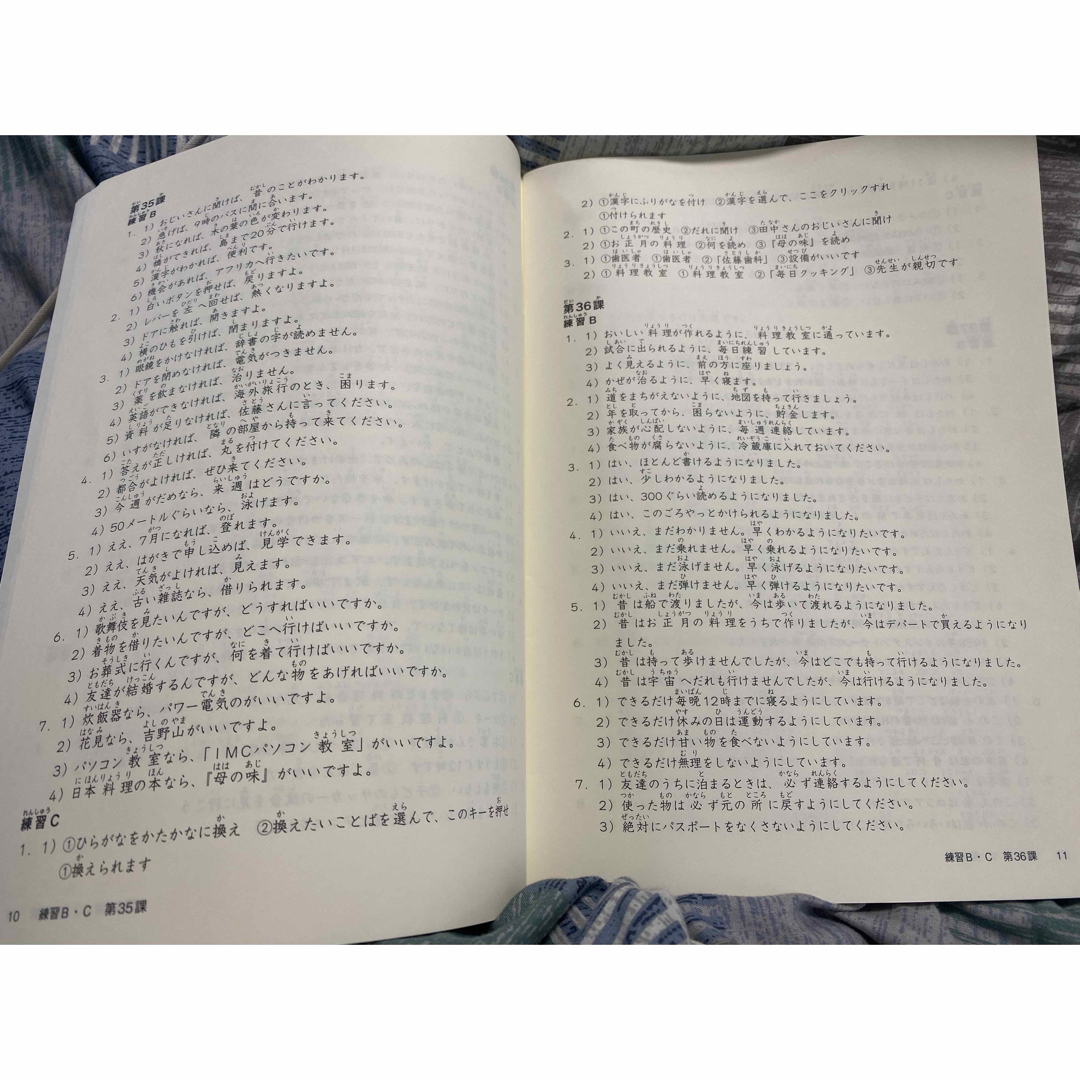 第35課
練習B
1. 1) おじいさんに聞けば、昔のことがわかります。
2) 急げば、9時のバスに間に合います。
3) 秋になれば、木の葉の色が変わります。
4) 橋ができれば、島まで20分で行けます。
5) 漢字がわかれば、便利です。
6) 機会があれば、アフリカへ行きたいです。
2. 1) 白いボタンを押せば、戻りますよ。
2) レバーを左へ回せば、熱くなりますよ。
3) ドアに触れば、開きますよ。
4) 横のひもを引けば、閉まりますよ。
3. 1) 眼鏡をかけなければ、辞書の字が読めません。
2) ドアを閉めなければ、電気がつきません。
3) 薬を飲まなければ、治りません。
4) 英語ができなければ、海外旅行のとき、困ります。
5) 資料が足りなければ、佐藤さんに言ってください。
6) いすがなければ、隣の部屋から持って来てください。
4. 1) 答えが正しければ、丸を付けてください。
2) 都合がよければ、ぜひ来てください。
3) 今週がだめなら、来週はどうですか。
4) 50メートルぐらいなら、泳げます。
5. 1) ええ、7月になれば、登れます。
2) ええ、はがきで申し込めば、見学できます。
3) ええ、天気がよければ、見えます。
4) ええ、古い雑誌なら、借りられます。
6. 1) 歌舞伎を見たいんですが、どうすればいいですか。
2) 着物を借りたいんですが、どこへ行けばいいですか。
3) お葬式に行くんですが、何を着て行けばいいですか。
4) 友達が結婚するんですが、どんな物をあげればいいですか。
7. 1) 炊飯器なら、パワー電気のがいいですよ。
2) 花見なら、吉野山がいいですよ。
3) パソコン教室なら、「IMCパソコン教室」がいいですよ。
4) 日本料理の本なら、『母の味』がいいですよ。
練習C
1. 1) ①ひらがなをかたかなに換え ②換えたいことばを選んで、このキーを押せ
①換えられます
10 練習B・C 第35課
2) ①漢字にふりがなを付け ②漢字を選んで、ここをクリックすれ
①付けられます
2. 1) ①この町の歴史 ②だれに聞け ③田中さんのおじいさんに聞け
2) ①お正月の料理 ②何を読め ③『母の味』を読め
3. 1) ①歯医者 ①歯医者 ②「佐藤歯科」 ③設備がいいです
2) ①料理教室 ①料理教室 ②「毎日クッキング」 ③先生が親切です
第36課
練習B
1. 1) おいしい料理が作れるように、料理教室に通っています。
2) 試合に出られるように、毎日練習しています。
3) よく見えるように、前の方に座りましょう。
4) かぜが治るように、早く寝ます。
2. 1) 道をまちがえないように、地図を持って行きましょう。
2) 年を取ってから、困らないように、貯金します。
3) 家族が心配しないように、毎週連絡しています。
4) 食べ物が腐らないように、冷蔵庫に入れておいてください。
3. 1) はい、ほとんど書けるようになりました。
2) はい、少しわかるようになりました。
3) はい、300ぐらい読めるようになりました。
4) はい、このごろやっとかけられるようになりました。
4. 1) いいえ、まだわかりません。早くわかるようになりたいです。
2) いいえ、まだ乗れません。早く乗れるようになりたいです。
3) いいえ、まだ泳げません。早く泳げるようになりたいです。
4) いいえ、まだ弾けません。早く弾けるようになりたいです。
5. 1) 昔は船で渡りましたが、今は歩いて渡れるようになりました。
2) 昔はお正月の料理をうちで作りましたが、今はデパートで買えるようになり
ました。
3) 昔は持って歩けませんでしたが、今はどこでも持って行けるようになりました。
4) 昔は宇宙へだれも行けませんでしたが、今は行けるようになりました。
6. 1) できるだけ毎晩12時までに寝るようにしています。
2) できるだけ休みの日は運動するようにしています。
3) できるだけ甘い物を食べないようにしています。
4) できるだけ無理をしないようにしています。
7. 1) 友達のうちに泊まるときは、必ず連絡するようにしてください。
2) 使った物は必ず元の所に戻すようにしてください。
3) 絶対にパスポートをなくさないようにしてください。
練習B・C 第36課 11